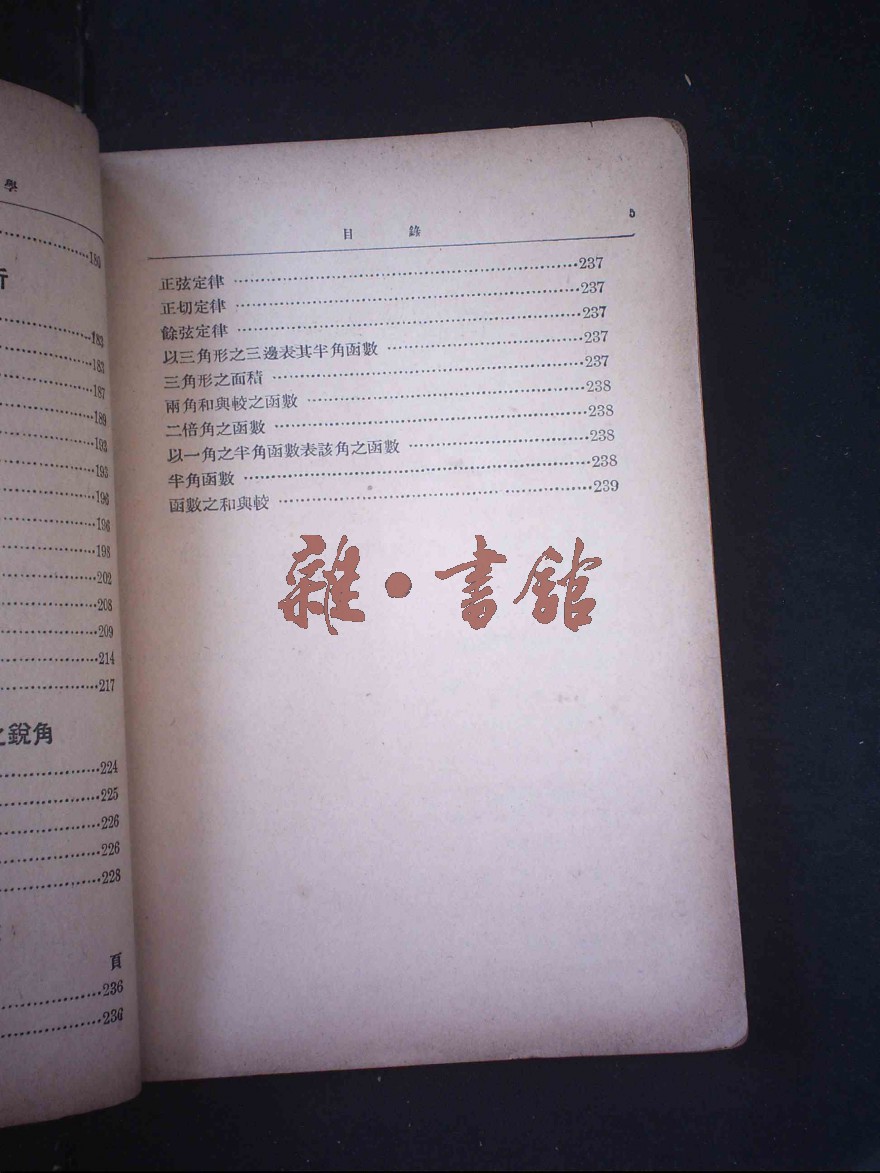 學
180
183
183
187
189
193
193
196
196
198
202
208
209
214
217
之銳角
224
225
226
226
228
頁
236
236
目 錄 5
正弦定律 237
正切定律 237
餘弦定律 237
以三角形之三邊表其半角函數 237
三角形之面積 237
兩角和與較之函數 238
二倍角之函數 238
以一角之半角函數表該角之函數 238
半角函數 238
函數之和與較 239
雜·書館